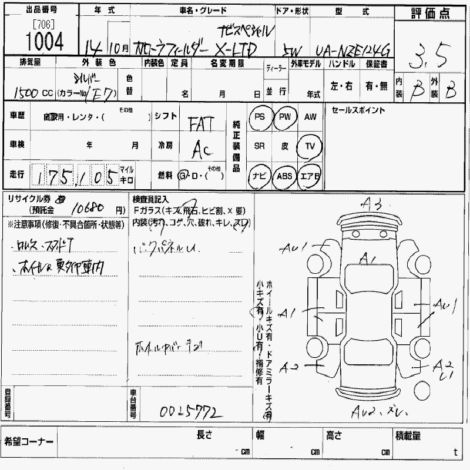 出品番号 年式 車名・グレード ドア・形状 型式 評価点
[706] ナビスペシャル
1004 14年 10月 カローラフィールダー X-LTD 5W UA-NZE124G 3.5
排気量 外装色 内装色 定員 名変期限 ディーラー 外車モデル ハンドル 保証書 内装 B 外装 B
1500 CC シルバー (カラーNo. 1E7) 色替 名 月 日 並行 年式 左・右 有・無
車歴 自家用・レンタ・(その他) シフト FAT 純正装備品 PS PW AW セールスポイント
車検 年 月 冷房 AC SR 皮 TV
走行 175,105 マイル キロ 燃料 G・D・(その他) ナビ ABS エアB
リサイクル券 (預託金 10680 円) 検査員記入
Fガラス(キズ、飛石、ヒビ割、X 要)
※注意事項(修復・不具合箇所・状態等) 内装(汚れ、コゲ、穴、破れ、キレ、スレ)
バックパネルU
小キズ有・小U有・補修有
ホイールキズ有・ドアミラーキズ(有)
A3
AU1 AU1
A1
A1 AU1
A2 A2
U1
AU2、ズレ
登録番号 車台番号 0025772
希望コーナー 長さ cm 幅 cm 高さ cm 積載量 t